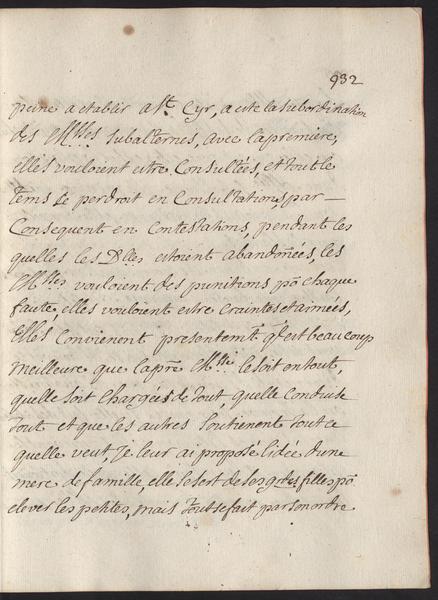 932
peine a etablir a St. Cyr, a ete la subordination
des Mlles subalternes, avec la premiere,
elles vouloient estre Consultées, et tout le
tems se perdroit en Consultations par
Consequent en Contestations, pendant les
quelles les Dlles estoient abandonées, les
Mlles vouloient des punitions po chaque
faute, elles vouloient estre craintes et aimées,
Elles convienent presentemt. ql est beaucoup
meilleure que la pre Msse le soit en tout,
quelle soit Chargées de tout, quelle conduise
tout et que les autres soutienent tout ce
quelle veut, Je leur ai proposé lidée dune
mere de famille, elle se sert de ses gdes filles po
elever les petites, mais tout se fait par son ordre